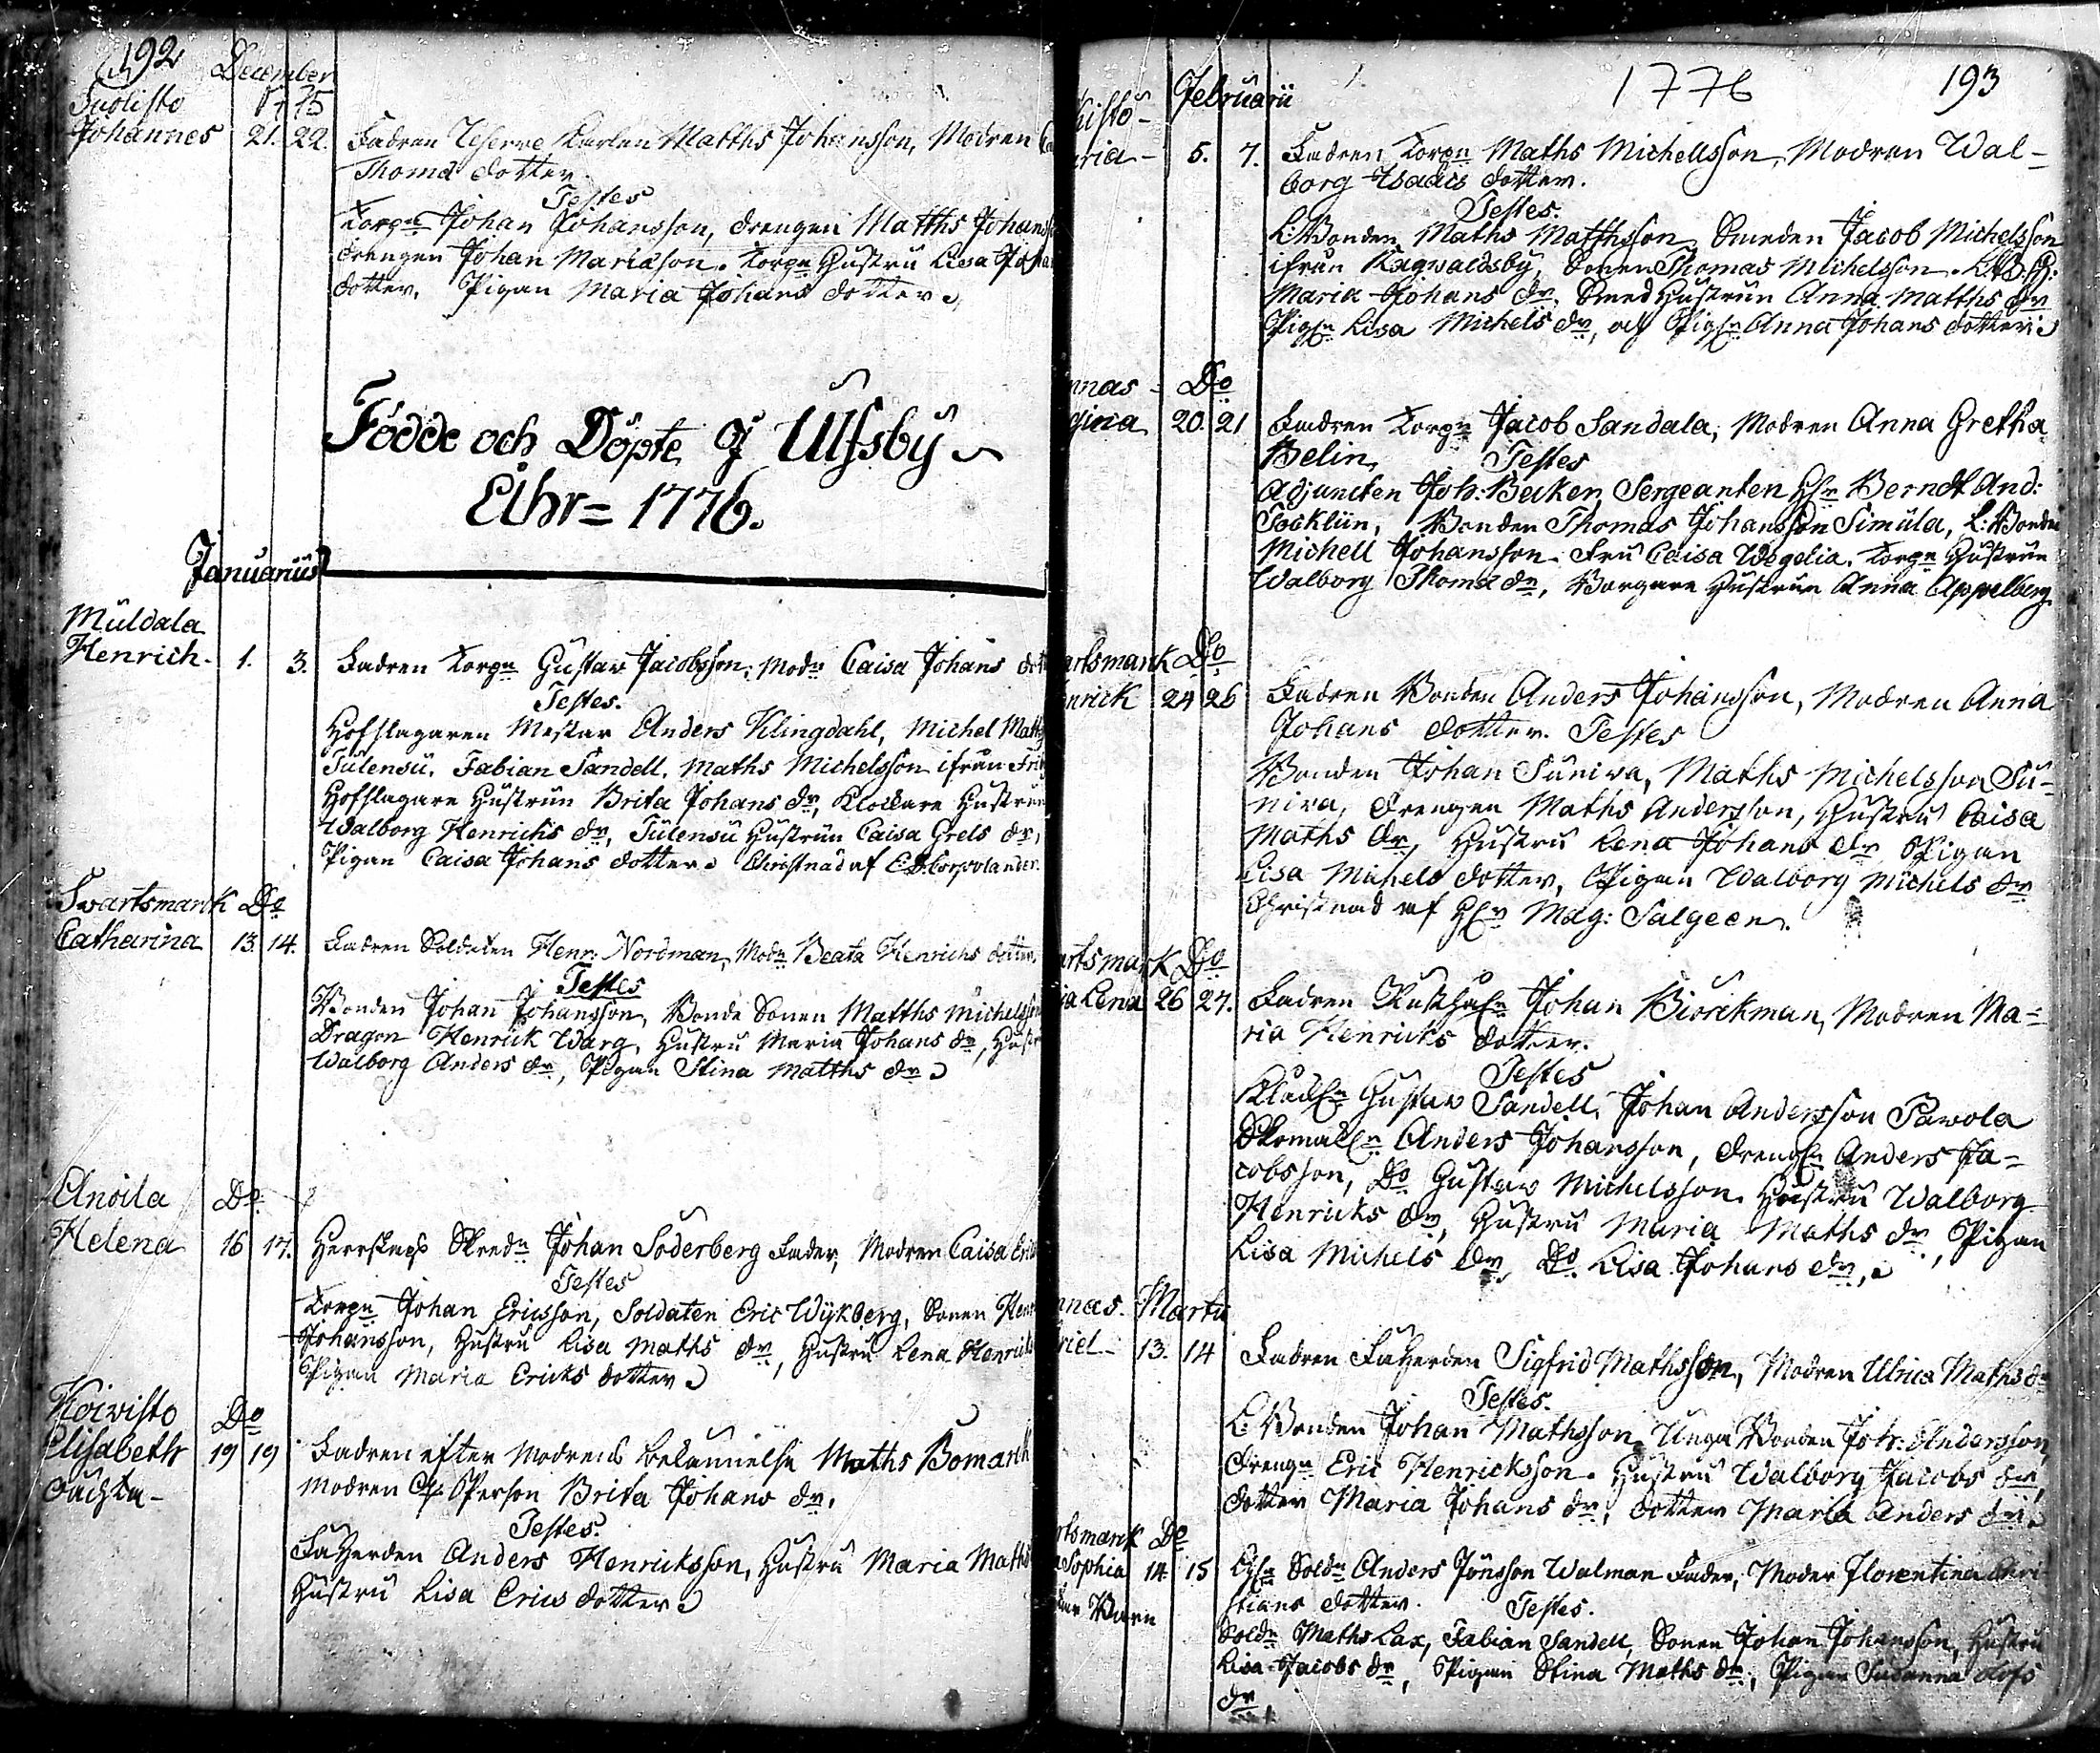 192 December
Suolisto 1775
Johannes 21. 22. Fadren Reserve Karlen Matths Johansson, Modren
Thomæ dotter.
Testes
Torp:n Johan Johansson, drengen Matths Johans
drengen Johan Mariæson. Torp:n Hustru Lisa Joha
dotter, Pigan Maria Johans dotter.
Födde och Döpte I Ulfsby
Åhr= 1776.
Januarius
Muldala
Henrich. 1. 3. Fadren Torp:n Gustav Jacobsson, Mod:n Caisa Johans dot
Testes.
Hofslagaren Mestar Anders Klingdahl, Michel Matths
Tulensu. Fabian Sandell. Maths Michelsson ifrån Frib
Hofslagare Hustrun Brita Johans dr, Klockare Hustrun
Walborg Henrichs dr, Tulensu Hustrun Caisa Grels dr,
Pigan Caisa Johans dotter. Christnad af
Svartsmark Do
Catharina 13. 14. Fadren Soldaten Henr: Nordman, Mod:n Beata Henrichs dotter.
Testes
Bonden Johan Johansson, Bonde Sonen Matths Michelsson
Dragon Henrick Warg, Hustru Maria Johans dr, Hustr
Walborg Anders dr, Pigan Stina Matths dr
Anoila Do
Helena 16 17. Herrskaps Skred:n Johan Söderberg Fader, Modren Caisa Eric
Testes
Torp:n Johan Ericsson, Soldaten Eric Wijkberg, Sonen Hen
Johansson, Hustru Lisa Maths dr, Hustru Lena Henrichs
Pigan Maria Ericks dotter
Koivisto Do
Elisabeth 19 19 Fadren efter Modrens bekännelse Maths Bomark
oächta - Modren Person Brita Johans dr.
Testes.
Fäherden Anders Henricksson, Hustru Maria Maths
Hustru Lisa Erics dotter
Februarii 1776 193
visto-
ria- 5. 7. Fadren Torp:n Maths Michellsson, Modren Wal-
borg Isacks dotter.
Testes.
L: Bonden Maths Matthsson, Smeden Jacob Michelsson
ifrån Ragvaldsby, Sonen Thomas Michelsson. L.B.H:
Maria Johans dr. Smed Hustrun Anna Matths dr
Pig:n Lisa Michels dr, och Pig:n Anna Johans dotter
nnas - Do
gina 20. 21 Fadren Torp:n Jacob Sandala, Modren Anna Gretha
Belin, Testes
Adjuncten Joh: Becker, Sergeanten H:r Berndt And:
Tocklin, Bonden Thomas Johansson Simula, L: Bonden
Michell Johansson. Fru Caisa Wegelia. Torp:n Hustrun
Walborg Thomæ dr, Borgare Hustrun Anna Appelberg
artsmark Do
nrick 24 26 Fadren Bonden Anders Johansson, Modren Anna
Johans dotter. Testes
Bonden Johan Suniva, Maths Michelsson Su-
niva, drengen Maths Andersson, Hustru Caisa
Maths dr, Hustru Lena Johans dr Pigan
Lisa Michels dotter, Pigan Walborg Michels dr
Christnad af H:r Mag: Salgeen.
artsmark Do
ia Lena 26 27. Fadren Johan Biörckman, Modren Ma-
ria Henricks dotter.
Testes
Klock:n Gustav Sandell, Johan Andersson Pavola
Skomak:n Anders Johansson, dreng:n Anders Ja-
cobsson, Do Gustav Michelsson. Hustru Walborg
Henricks dr, Hustru Maria Maths dr, Pigan
Lisa Michels dr, Do. Lisa Johans dr,
nnas. Martii
riel - 13. 14 Fadren Fäherden Sigfrid Mathsson, Modren Ulrica Maths dr
Testes.
L: Bonden Johan Mathsson, Unga Bonden Joh: Andersson,
Dreng:n Eric Henricksson. Hustru Walborg Jacobs dr,
dotter Maria Johans dr, dotter Maria Anders dr.
rtsmark Do
Sophia 14 15 Sold:n Anders Jönsson Walman Fader, Moder Florentina Chri-
Barn stians dotter. Testes.
Sold:n Maths Lax, Fabian Sandell, Sonen Johan Johansson, Hustru
Lisa Jacobs dr, Pigan Stina Maths dr, Pigan Susanna Olofs
dr